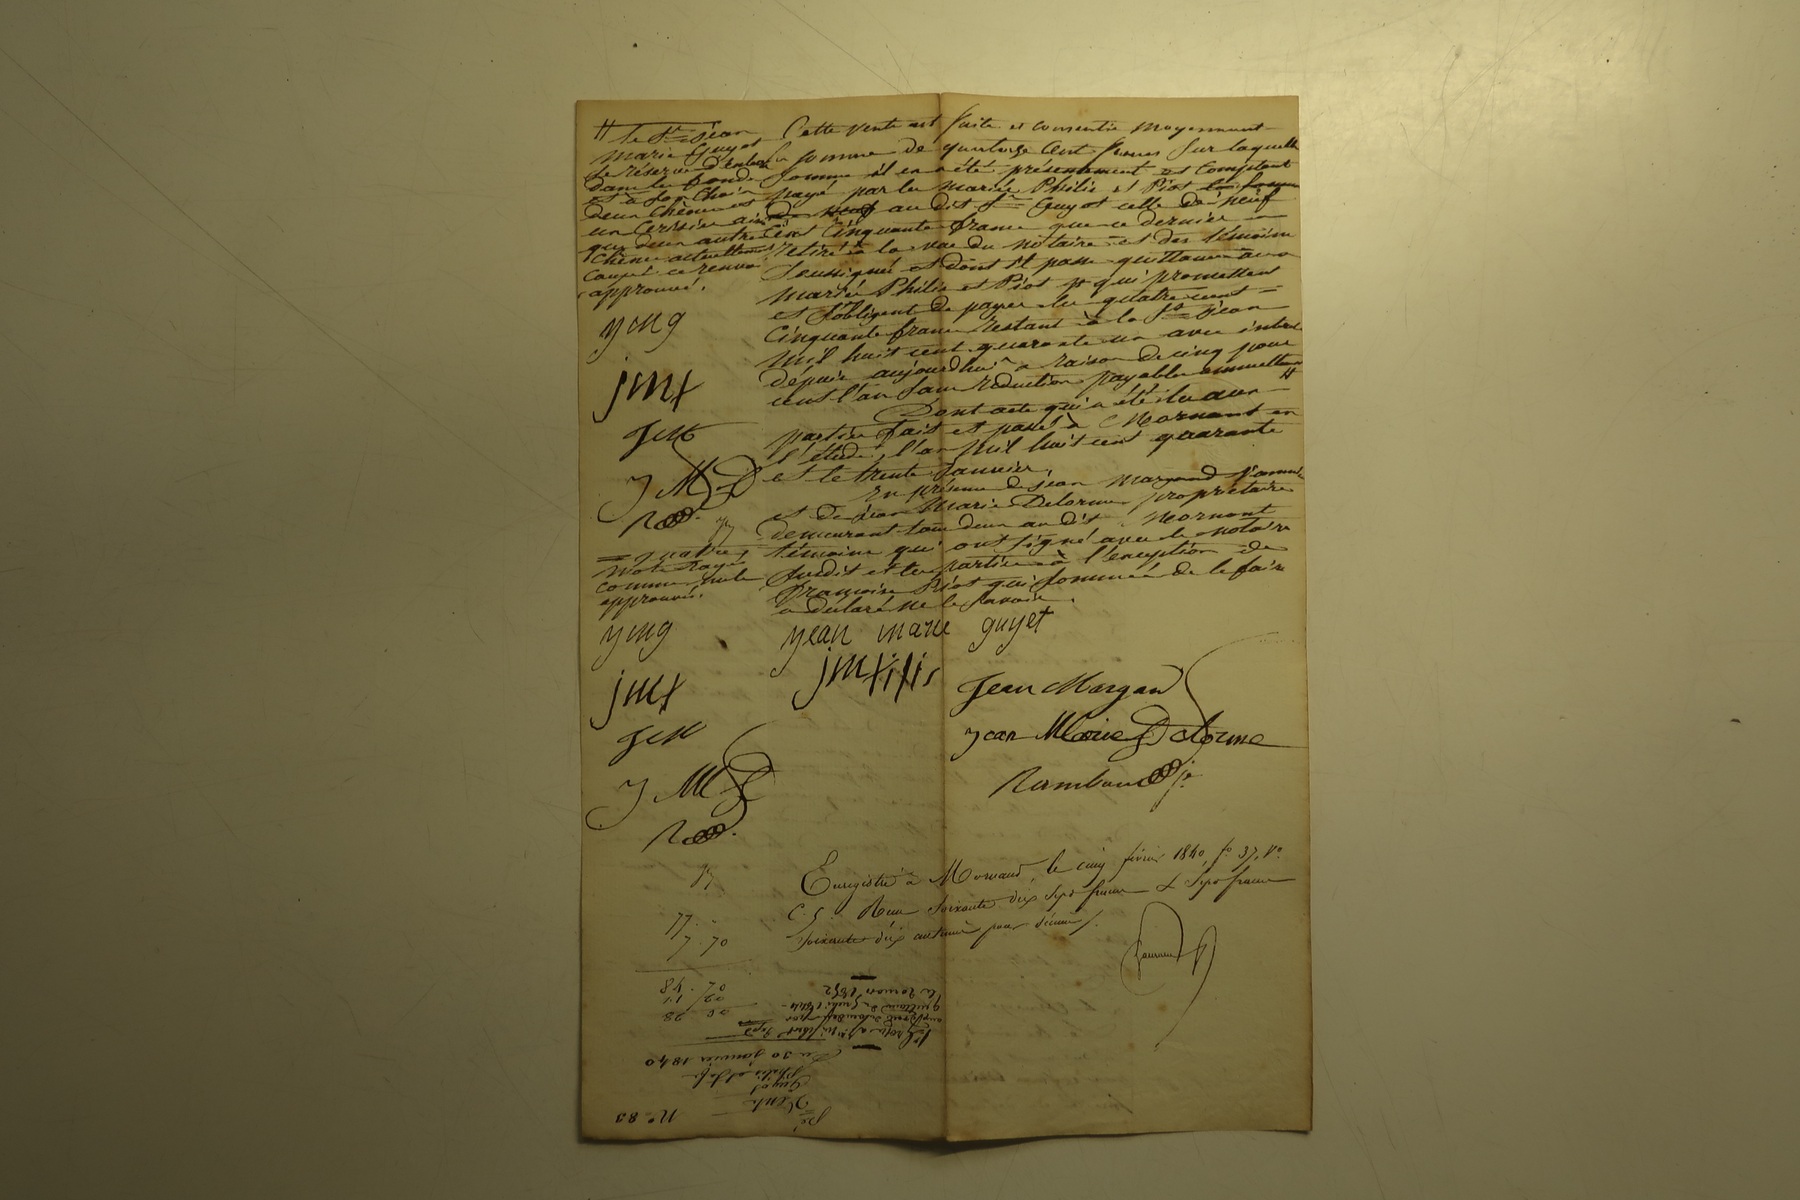 # le Sr Jean
Marie Guyot
se réserve d'enlever
dans les fonds
et à son choix
deux chênes et
un cerisier ainsi
que deux autres
chênes actuellement
coupés ce renvoi
approuvé.
ymg
jmf
JM
J M D
R
Cette vente est faite et consentie moyennant
la somme de quatorze cent francs sur laquelle
somme il en a été présentement et comptant
payé par les mariés Philis et Piot
au dit Sr Guyot celle de neuf
cent cinquante francs que ce dernier
retiré à la vue du notaire et des témoins
soussignés et dont il passe quittance aux
mariés Philis et Piot qui promettent
et s'obligent de payer les quatre cent
cinquante francs restant à la St Jean
mil huit cent quarante un avec intérêts
depuis aujourd'hui à raison de cinq pour
cent l'an sans réduction payables annuellement #
Dont acte qui a été lu aux
parties fait et passé à Mornant en
l'étude, l'an mil huit cent quarante
et le trente janvier.
En présence de Jean Margand
et de Jean Marie Delorme propriétaire
demeurant tous deux au dit Mornant
témoins qui ont signé avec le notaire
susdit et les parties à l'exception de
Françoise Piot qui sommée de le faire
a déclaré ne le savoir.
= quatre
mots rayés
comme nuls
approuvés.
ymg
jmf
JM
J M D
R
yean marie guyet
jmfilis
Jean Margan
Jean Marie Delorme
Rambaud je
Enregistré à Mornand, le cinq février 1840, fo 37, Vo
C. 5. Reçu soixante dix sept francs & sept francs
soixante dix centimes pour décime.
77. -
7. 70
84. 70
Du 30 janvier 1840
Vente
Guyot
No 83